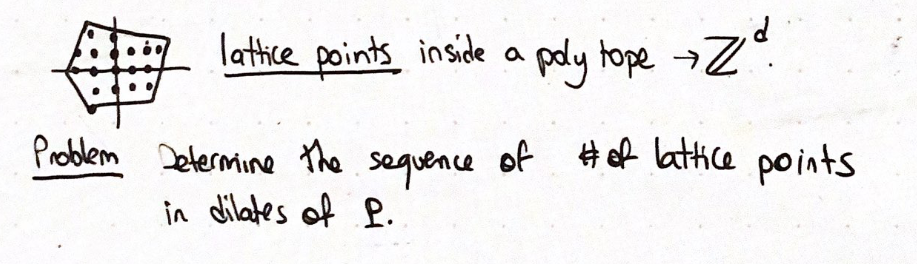 lattice points inside a polytope → ℤᵈ.
Problem Determine the sequence of # of lattice points
in dilates of P.